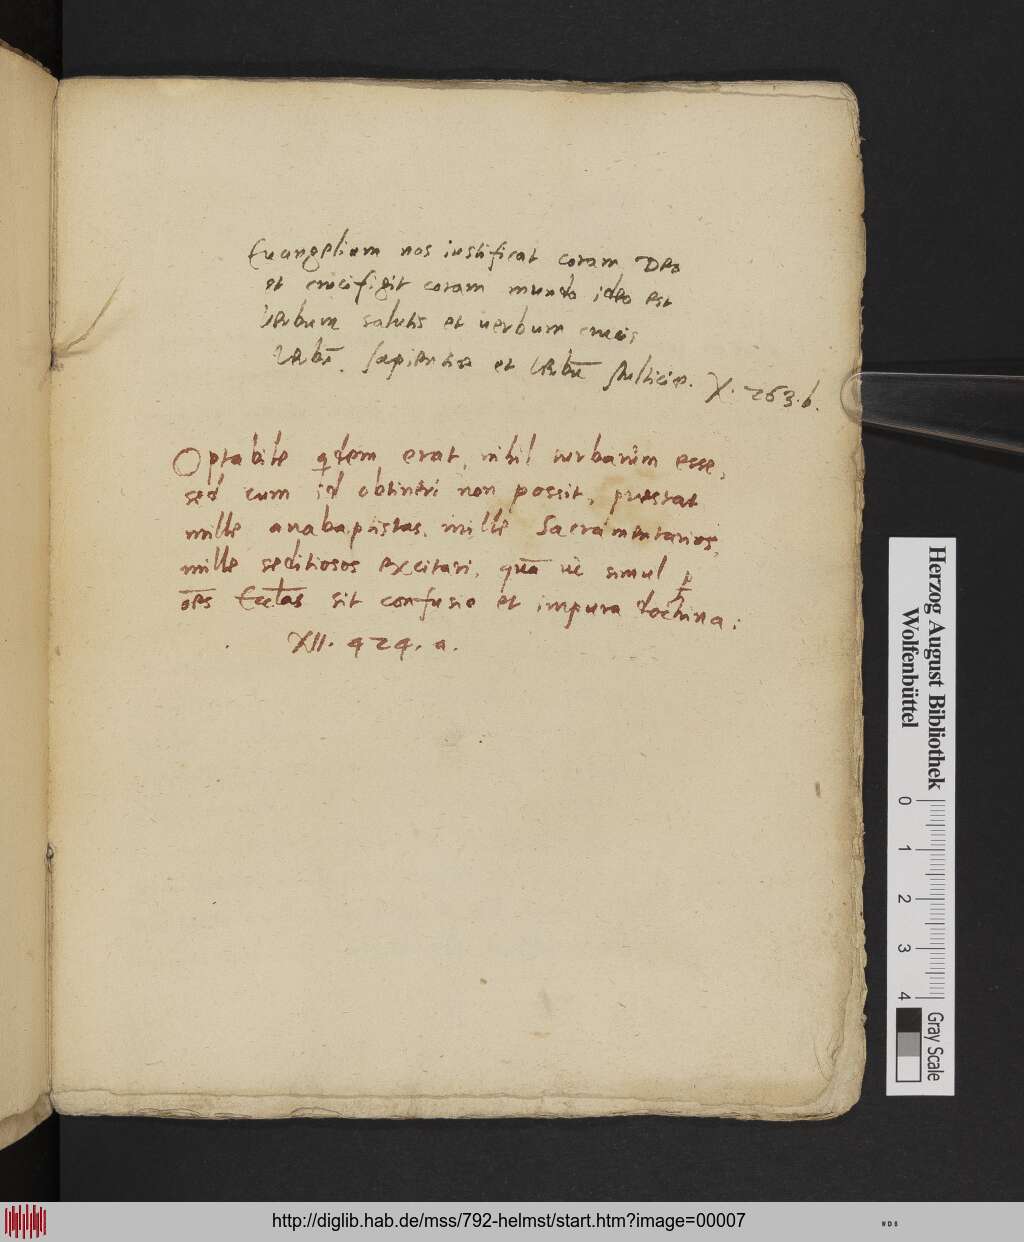 Euangelium nos iustificat coram Deo
et crucifigit coram mundo ideo est
Verbum salutis et uerbum crucis
Verbū. sapientiae et Verbū stulticie. X. 263. b.
Optabile qdem erat, nihil turbarum esse,
sed cum id obtineri non possit, prestat
mille anabaptistas, mille Sacramentarios,
mille seditiosos excitari, quā ut simul p
oēs Eccl̄as sit confusio et impura doctrina:
XII. 424. a.
Herzog August Bibliothek
Wolfenbüttel
0 1 2 3 4
Gray Scale
http://diglib.hab.de/mss/792-helmst/start.htm?image=00007